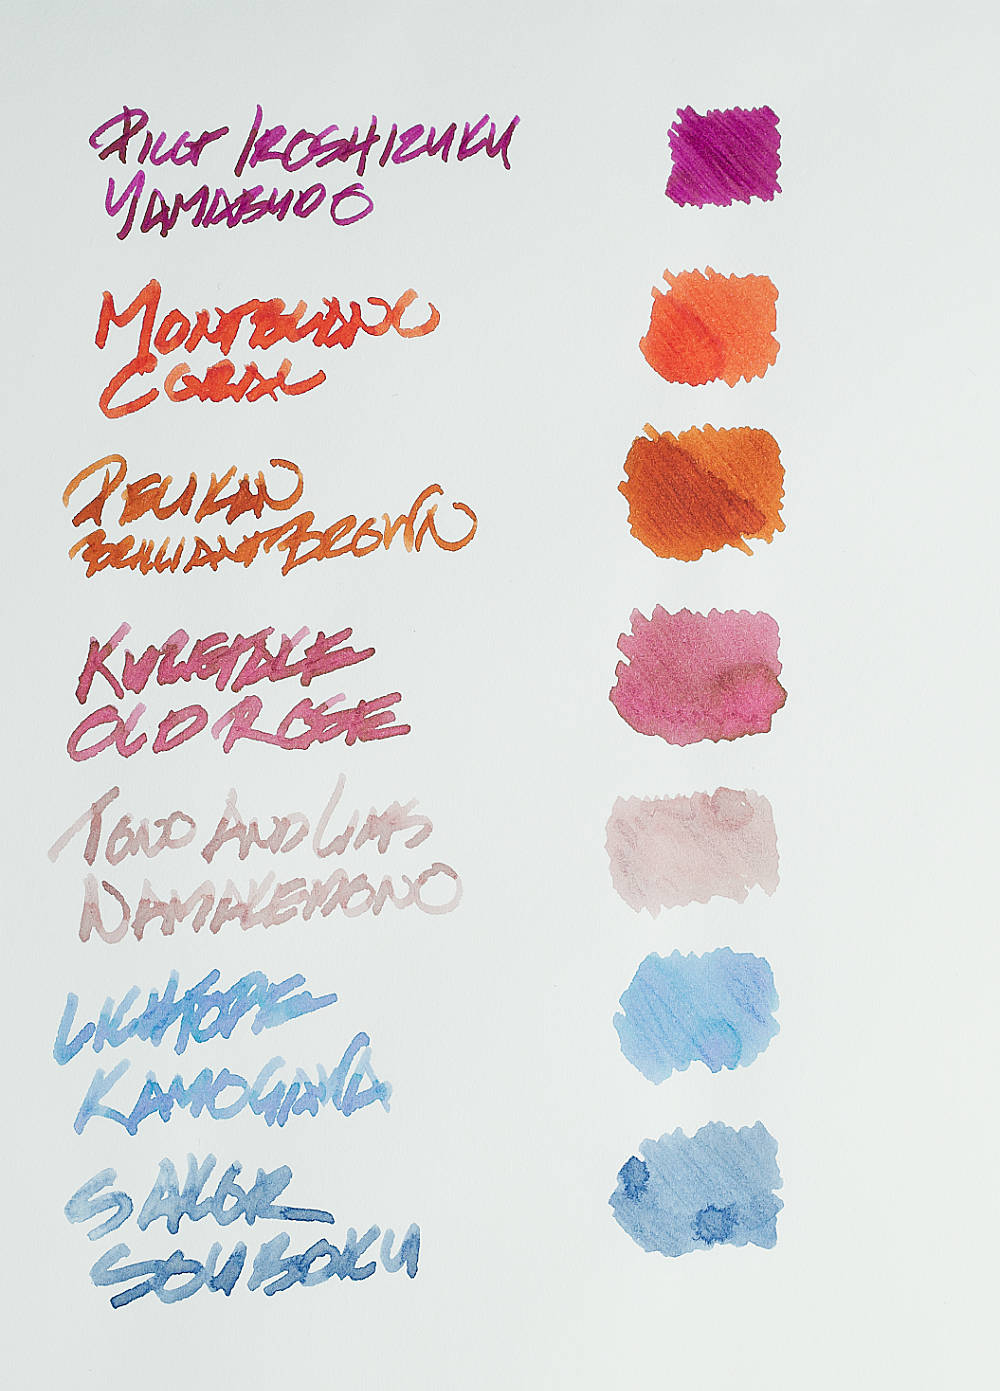 PILOT IROSHIZUKU
YAMABUDO
MONTBLANC
CORAL
PELIKAN
BRILLIANT BROWN
KURETAKE
OLD ROSE
TONO AND LIMS
NAMAKEMONO
LIGHTOPE
KAMOGAWA
SAILOR
SOUBOKU